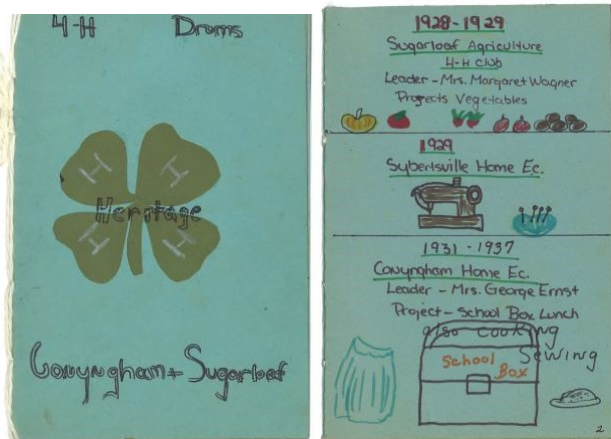 4-H Drams
H H
Heritage
H H
Conyngham + Sugarloaf
1928-1929
Sugarloaf Agriculture
4-H Club
Leader - Mrs. Margaret Wagner
Projects Vegetables
1929
Sybertsville Home Ec.
1931 - 1937
Conyngham Home Ec.
Leader - Mrs. George Ernst
Project - School Box Lunch
also cooking
Sewing
School
Box
2